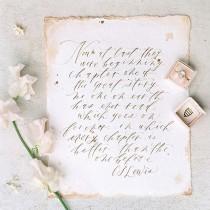 Now at last they
were beginning
chapter one of
the great story
no one on earth
has ever read
which goes on
forever in which
every chapter is
better than the
one before
CS Lewis